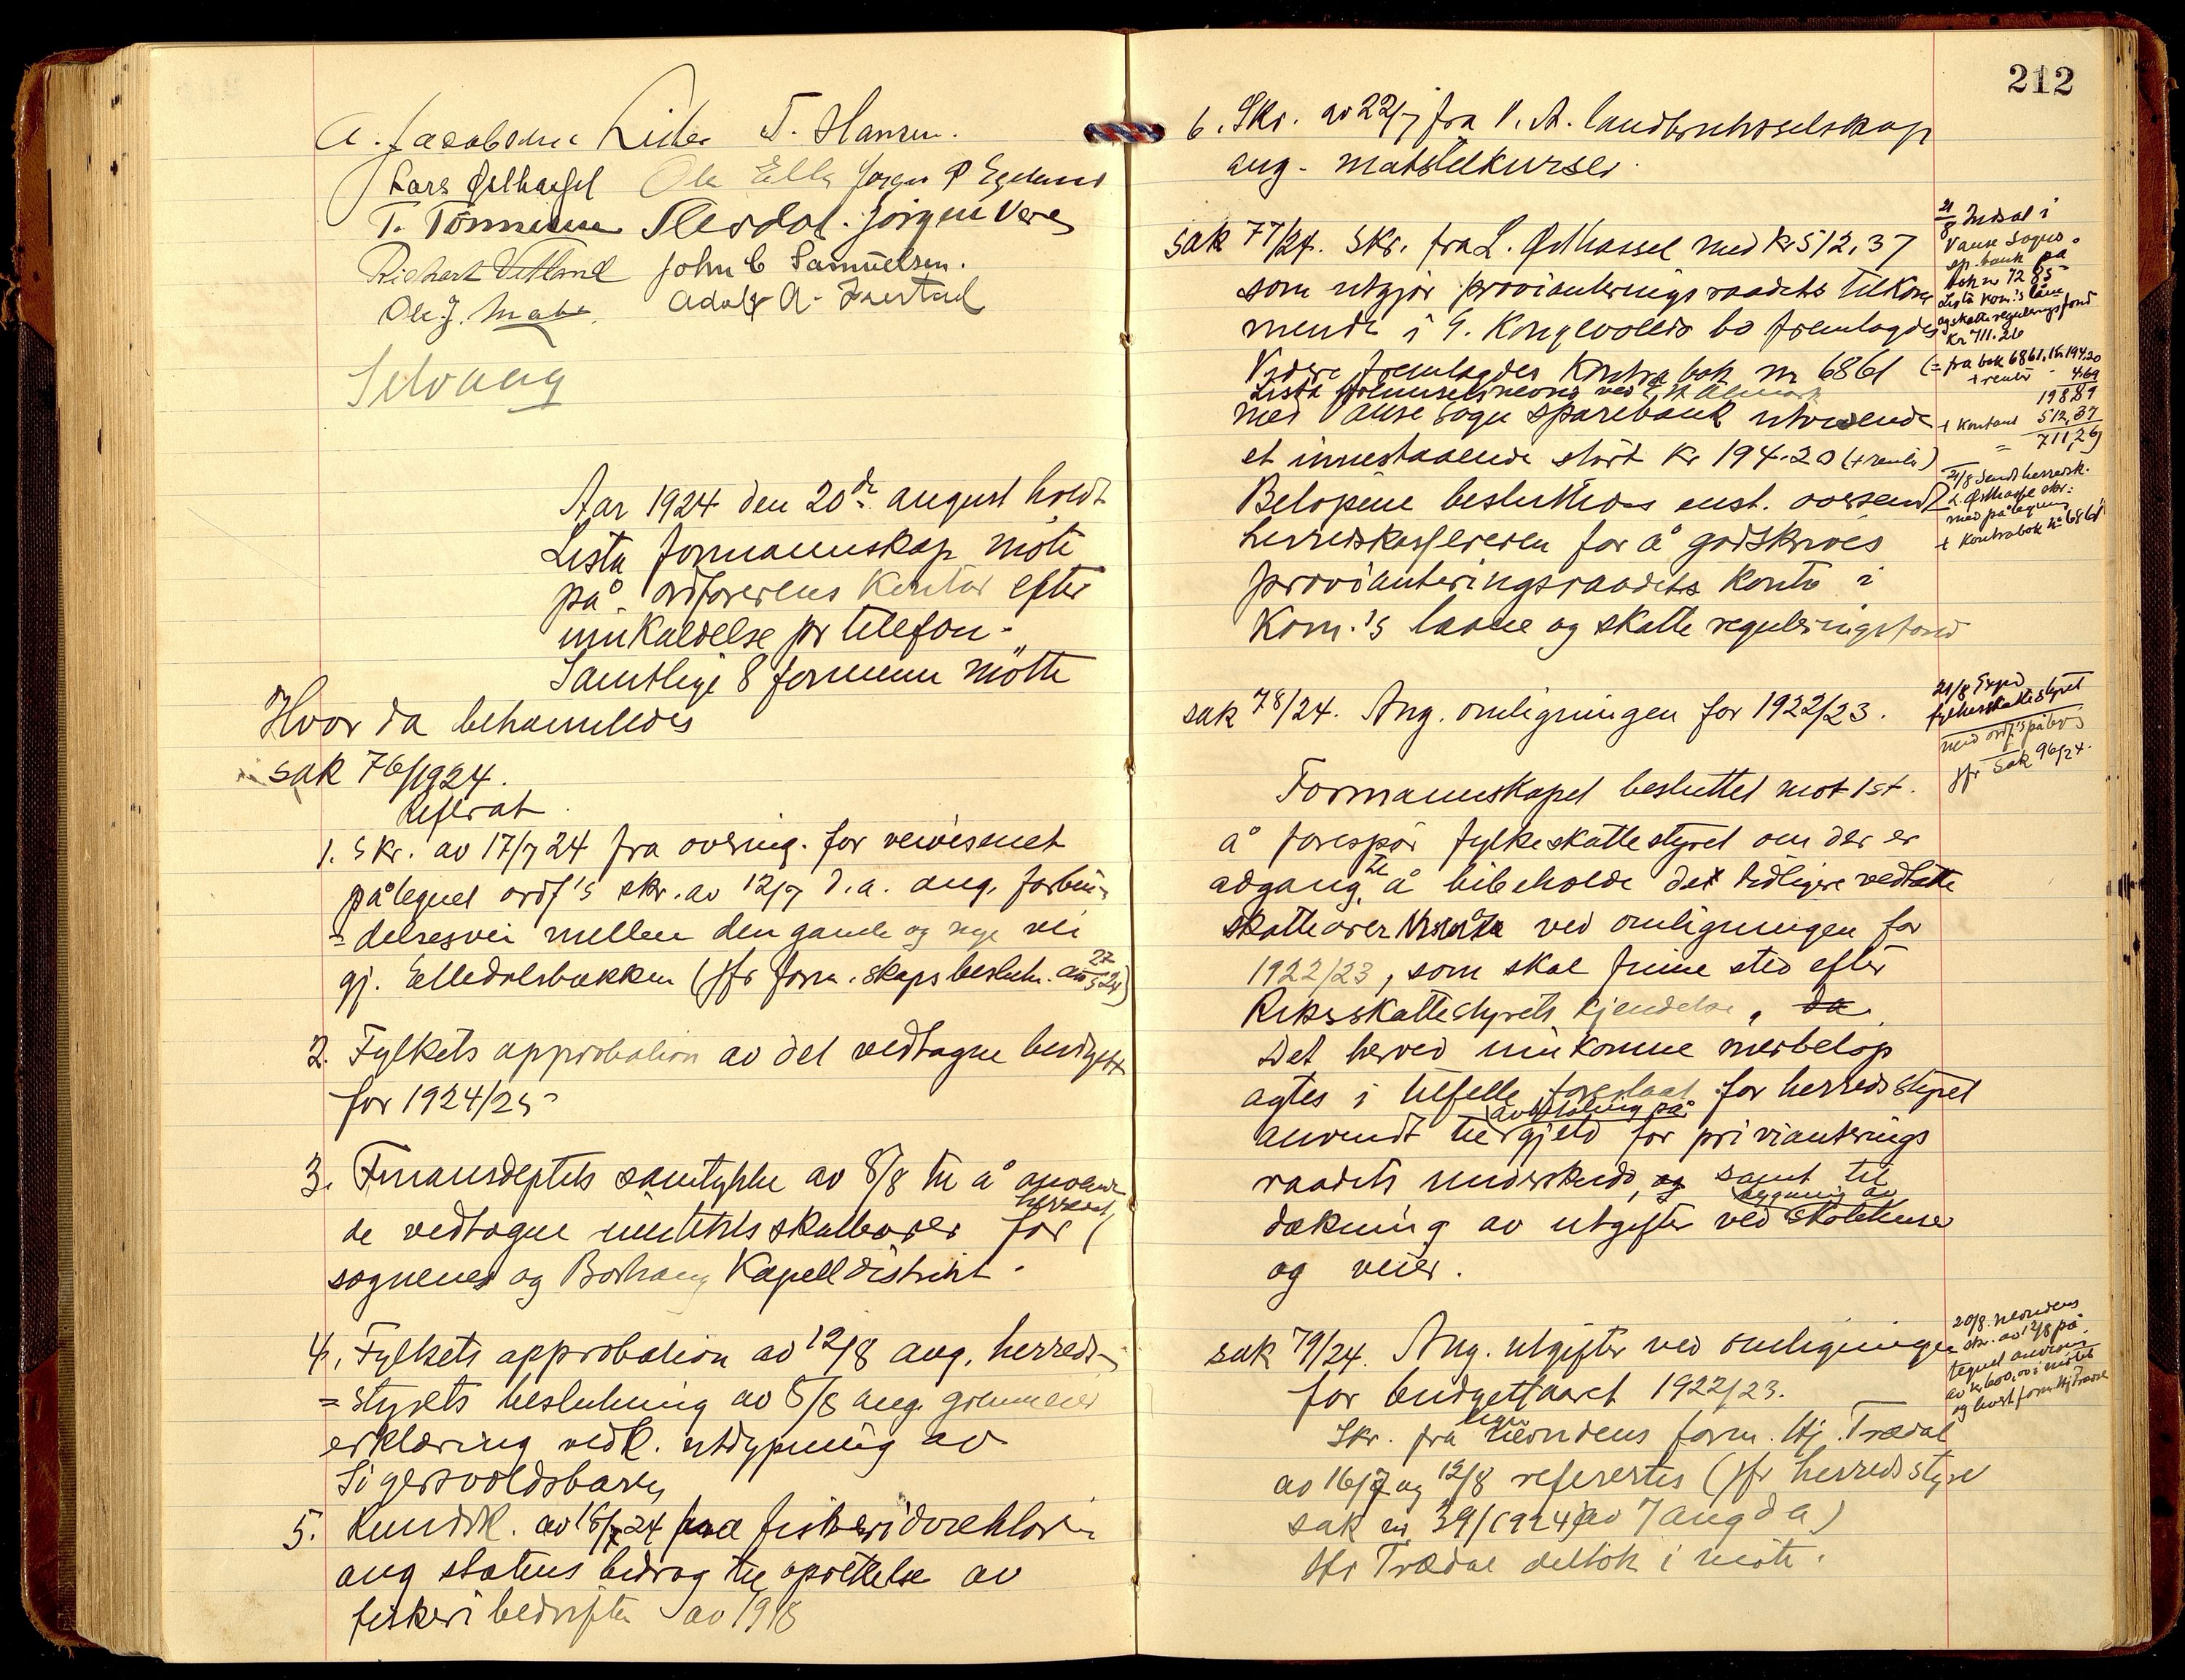 A. Jacobsen Lister T. Hansen.
Lars Østhassel Ole Elle Jørgen P Egelund
T. Tönnessen Slerdal. Jörgen Vere
Richart Vetland John C Samuelsen.
Ole J. Adolf A.
Selvaag
Aar 1924 den 20de august holdt
Lista formannskap møte
på ordførerens kontor efter
innkaldelse pr telefon.
Samtlige 8 formenn møtte
Hvor da behandledes
sak 76/1924.
Referat
1. Skr. av 17/7 24 fra overing. for veivesenet
påtegnet ordf's skr. av 12/7 d.a. ang. forbin-
=delsesvei mellem den gamle og nye vei
gj. Elledalsbakken (jfr form.skaps beslutn. av 27/5 24)
2. Fylkets approbation av det vedtagne budgett
for 1924/25
3. Finansdeptets samtykke av 8/8 til å anvende
de vedtagne skatteører for herredet,
sognene og Borhaug Kapelldistrikt.
4. Fylkets approbation av 12/8 ang. herreds-
=styrets beslutning av 5/8 ang.
erklæring vedk. utdypning av
Sigersvoldsbaren
5. Rundsk. av 18/7 24 fra fiskeridirektøren
ang statens bidrag til oprettelse av
fiskeribedrifter av 1918
212
6. Skr. av 22/7 fra V. A. landbruksselskap
ang. matstelkurser.
sak 77/24. Skr. fra L. Østhassel med kr 512,37
som utgjør provianteringsraadets tilkom
mende i G. Kongevolds bo fremlagdes
Videre fremlagdes kontrabok nr 6861
Lista
med Vanse Sogns sparebank utvisende
et innestaaende stort kr 194.20 (+ renter)
Beløpene besluttedes enst. oversendt
herredskassereren for å godskrives
provianteringsraadets konto i
Kom.'s laane og skatte reguleringsfond
21/8 Indsat i
Vanse Sogns
sp.bank på
bok nr 7285
Lista kom.'s låne
og skattereguleringsfond
kr 711.26
(= fra bok 6861, kr 194.20
+ renter 4.69
198.89
+ Kontant 512,37
= 711,26)
21/8 Sendt herredsk.
L. Østhassel skr:
med påtegning
+ kontrabok nr 6861
sak 78/24. Ang. omligningen for 1922/23.
21/8 Exped
fylkesskattestyret
med ordf.'s påtegn
jfr sak 96/24.
Formannskapet besluttet mot 1 st.
å forespør fylkeskattestyret om der er
adgang til å bibeholde det tidligere vedtatte
skatteøre ved omligningen for
1922/23, som skal finne sted efter
Riksskattestyrets kjendelse, da.
Det herved innkomne merbeløp
agtes i tilfelle foreslaat for herredsstyret
anvendt til avbetaling på gjeld for provianterings
raadets underskudd, og samt til
dækning av utgifter ved bygning av skolehuse
og veier.
sak 79/24. Ang. utgifter ved omligningen
for budgettaaret 1922/23.
20/8.
skr. av 12/8 på
tegnet
av kr 600,00 i møtet
Skr. fra lign. nevndens form. Hj. Trædal
av 16/7 og 12/8 refererte (jfr herredsstyre
sak nr 39/1924 av 7 aug d a)
Hr Trædal deltok i møte.